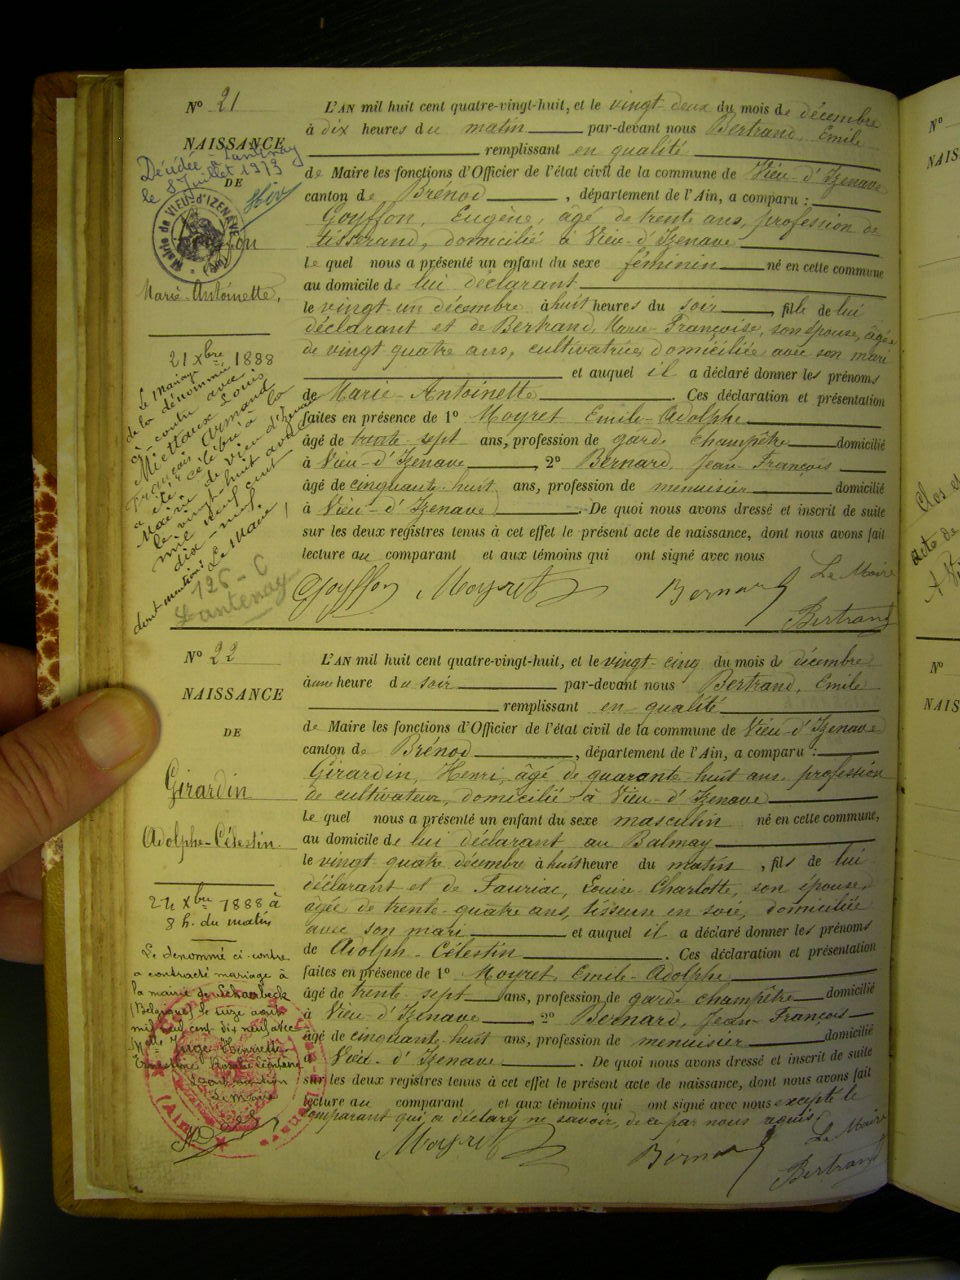 N° 21
NAISSANCE
Décédée à Lantenay
le 8 Juillet 1973
DE
Mairie de VIEU-d'IZENAVE (Ain)
Marie-Antoinette,
21 Xbre 1888
Le Mariage
de la dénommée
ci-contre avec
Miettaux Louis
François Armand
a été célébré à la
Mairie de Vieu d'Izenave
le vingt-huit avril
mil neuf cent
dix-neuf.
dont mention: Le Maire
126-C
Lantenay
L'AN mil huit cent quatre-vingt-huit, et le vingt-deux du mois de décembre
à dix heures du matin par-devant nous Bertrand, Emile
remplissant en qualité
de Maire les fonctions d'Officier de l'état civil de la commune de Vieu-d'Izenave
canton de Brénod, département de l'Ain, a comparu :
Goyffon, Eugène, âgé de trente ans, profession de
tisserand, domicilié à Vieu-d'Izenave
Le quel nous a présenté un enfant du sexe féminin né en cette commune
au domicile de lui déclarant
le vingt un décembre à huit heures du soir, fille de lui
déclarant et de Bertrand, Marie-Françoise, son épouse, âgée
de vingt quatre ans, cultivatrice, domiciliée avec son mari
et auquel il a déclaré donner les prénoms
de Marie-Antoinette. Ces déclaration et présentation
faites en présence de 1° Moyret Emile-Adolphe
âgé de trente-sept ans, profession de garde champêtre domicilié
à Vieu-d'Izenave, 2° Bernard, Jean François
âgé de cinquante-huit ans, profession de menuisier domicilié
à Vieu-d'Izenave De quoi nous avons dressé et inscrit de suite
sur les deux registres tenus à cet effet le présent acte de naissance, dont nous avons fait
lecture au comparant et aux témoins qui ont signé avec nous
Goyffon Moyret Bernard Le Maire
Bertrand
N° 22
NAISSANCE
DE
Girardin
Adolphe-Célestin.
24 Xbre 1888 à
8 h. du matin
Le dénommé ci-contre
a contracté mariage à
la mairie de Schaerbeck
(Belgique) le treize août
mil neuf cent dix neuf avec
Pour mention
Le Maire
L'AN mil huit cent quatre-vingt-huit, et le vingt-cinq du mois de décembre
à une heure du soir par-devant nous Bertrand, Emile
remplissant en qualité
de Maire les fonctions d'Officier de l'état civil de la commune de Vieu-d'Izenave
canton de Brénod, département de l'Ain, a comparu :
Girardin, Henri, âgé de quarante-huit ans, profession
de cultivateur, domicilié à Vieu-d'Izenave
Le quel nous a présenté un enfant du sexe masculin né en cette commune,
au domicile de lui déclarant au Balmay
le vingt-quatre décembre à huit heure du matin, fils de lui
déclarant et de Fauriac, Louise-Charlotte, son épouse,
âgée de trente-quatre ans, tisseuse en soie, domiciliée
avec son mari et auquel il a déclaré donner les prénoms
de Adolph-Célestin. Ces déclaration et présentation
faites en présence de 1° Moyret Emile-Adolphe
âgé de trente-sept ans, profession de garde champêtre domicilié
à Vieu-d'Izenave, 2° Bernard, Jean-François
âgé de cinquante-huit ans, profession de menuisier domicilié
à Vieu-d'Izenave. De quoi nous avons dressé et inscrit de suite
sur les deux registres tenus à cet effet le présent acte de naissance, dont nous avons fait
lecture au comparant et aux témoins qui ont signé avec nous excepté le
comparant qui a déclaré ne savoir, de ce par nous requis.
Moyret Bernard Le Maire
Bertrand
N°
NAIS
acte de
N°
NAIS